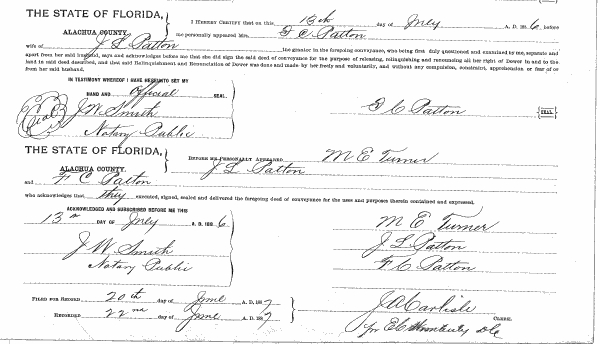 THE STATE OF FLORIDA,
ALACHUA COUNTY.
I HEREBY CERTIFY that on this 13th day of A. D. 188 6, before
me personally appeared Mrs. F. C. Patton
wife of J L Patton the grantor in the foregoing conveyance, who being first duly questioned and examined by me, separate and
apart from her said husband, says and acknowledges before me that she did sign the said deed of conveyance for the purpose of releasing, relinquishing and renouncing all her right of Dower in and to the
land in said deed described, and that said Relinquishment and Renunciation of Dower was done and made by her freely and voluntarily, and without any compulsion, constraint, apprehension or fear of or
from her said husband.
IN TESTIMONY WHEREOF I HAVE HEREUNTO SET MY
HAND AND Official SEAL.
J W Smith
Notary Public
F C Patton SEAL.
THE STATE OF FLORIDA,
ALACHUA COUNTY.
BEFORE ME PERSONALLY APPEARED M E Turner
J L Patton
and F C Patton
who acknowledges that they executed, signed, sealed and delivered the foregoing deed of conveyance for the uses and purposes therein contained and expressed.
ACKNOWLEDGED AND SUBSCRIBED BEFORE ME THIS
13th DAY OF A. D. 188 6
J W Smith
Notary Public
M E Turner
J L Patton
F C Patton
FILED FOR RECORD 20th day of June A. D. 188 7
RECORDED 22nd day of June A. D. 188 7
J A Carlisle CLERK.
pr